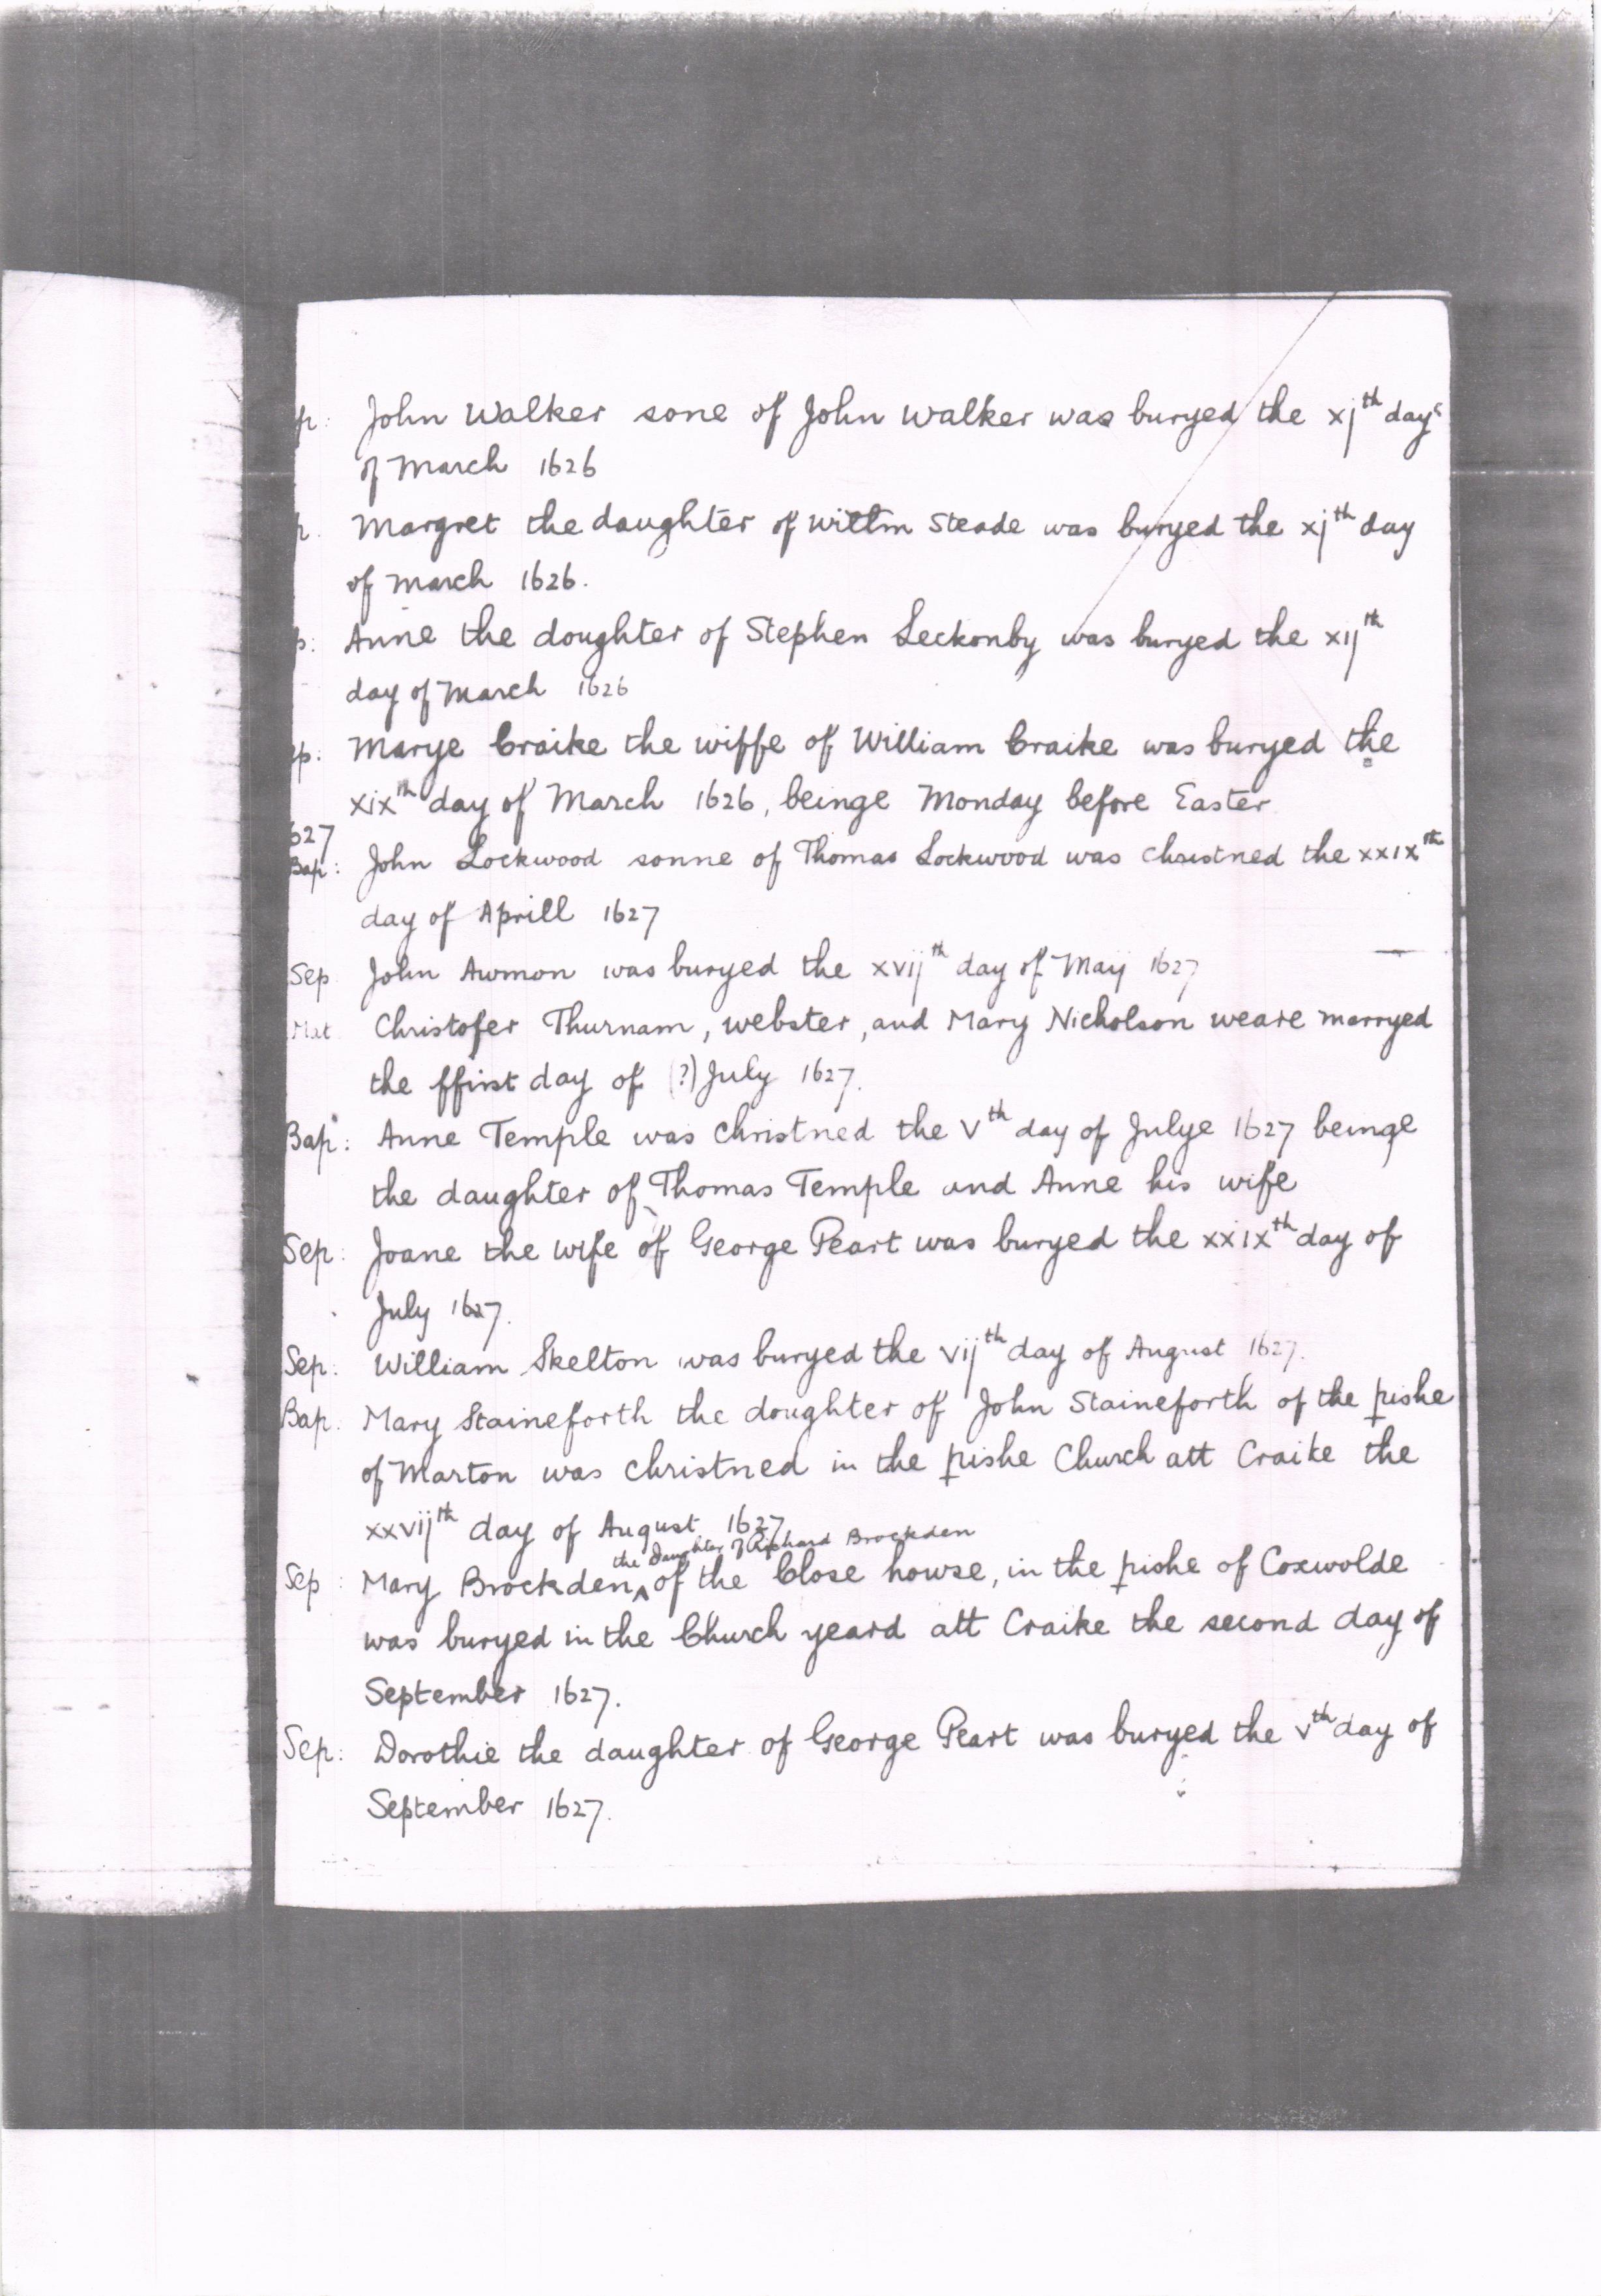 p: John Walker sone of John Walker was buryed the xjth day
of March 1626
p. Margret the daughter of Willm Steade was buryed the xjth day
of March 1626.
p: Anne the doughter of Stephen Leckonby was buryed the xijth
day of March 1626
ep: Marye Craike the wiffe of William Craike was buryed the
xixth day of March 1626, beinge Monday before Easter
627
Bap: John Lockwood sonne of Thomas Lockwood was christned the xxixth
day of Aprill 1627
Sep John Awmon was buryed the xvijth day of May 1627
Mat Christofer Thurnam, webster, and Mary Nicholson weare marryed
the ffirst day of (?) July 1627.
Bap: Anne Temple was christned the vth day of Julye 1627 beinge
the daughter of Thomas Temple and Anne his wife
Sep: Joane the wife of George Peart was buryed the xxixth day of
July 1627.
Sep: William Skelton was buryed the vijth day of August 1627.
Bap. Mary Staineforth the doughter of John Staineforth of the pishe
of Marton was christned in the pishe Church att Craike the
xxvijth day of August 1627
the Daughter of Richard Brockden
Sep: Mary Brockden^ of the Close howse, in the pishe of Coxwolde
was buryed in the Church yeard att Craike the second day of
September 1627.
Sep: Dorothie the daughter of George Peart was buryed the vth day of
September 1627.